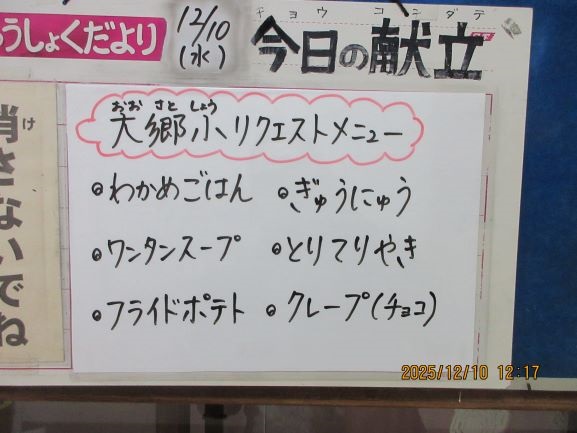 うしょくだより
12/10
(水)
キョウ コンダテ
今日の献立
おお さと しょう
大郷小リクエストメニュー
わかめごはん
ぎゅうにゅう
ワンタンスープ
とりてりやき
フライドポテト
クレープ(チョコ)
消さないでね
け
2025/12/10 12:17